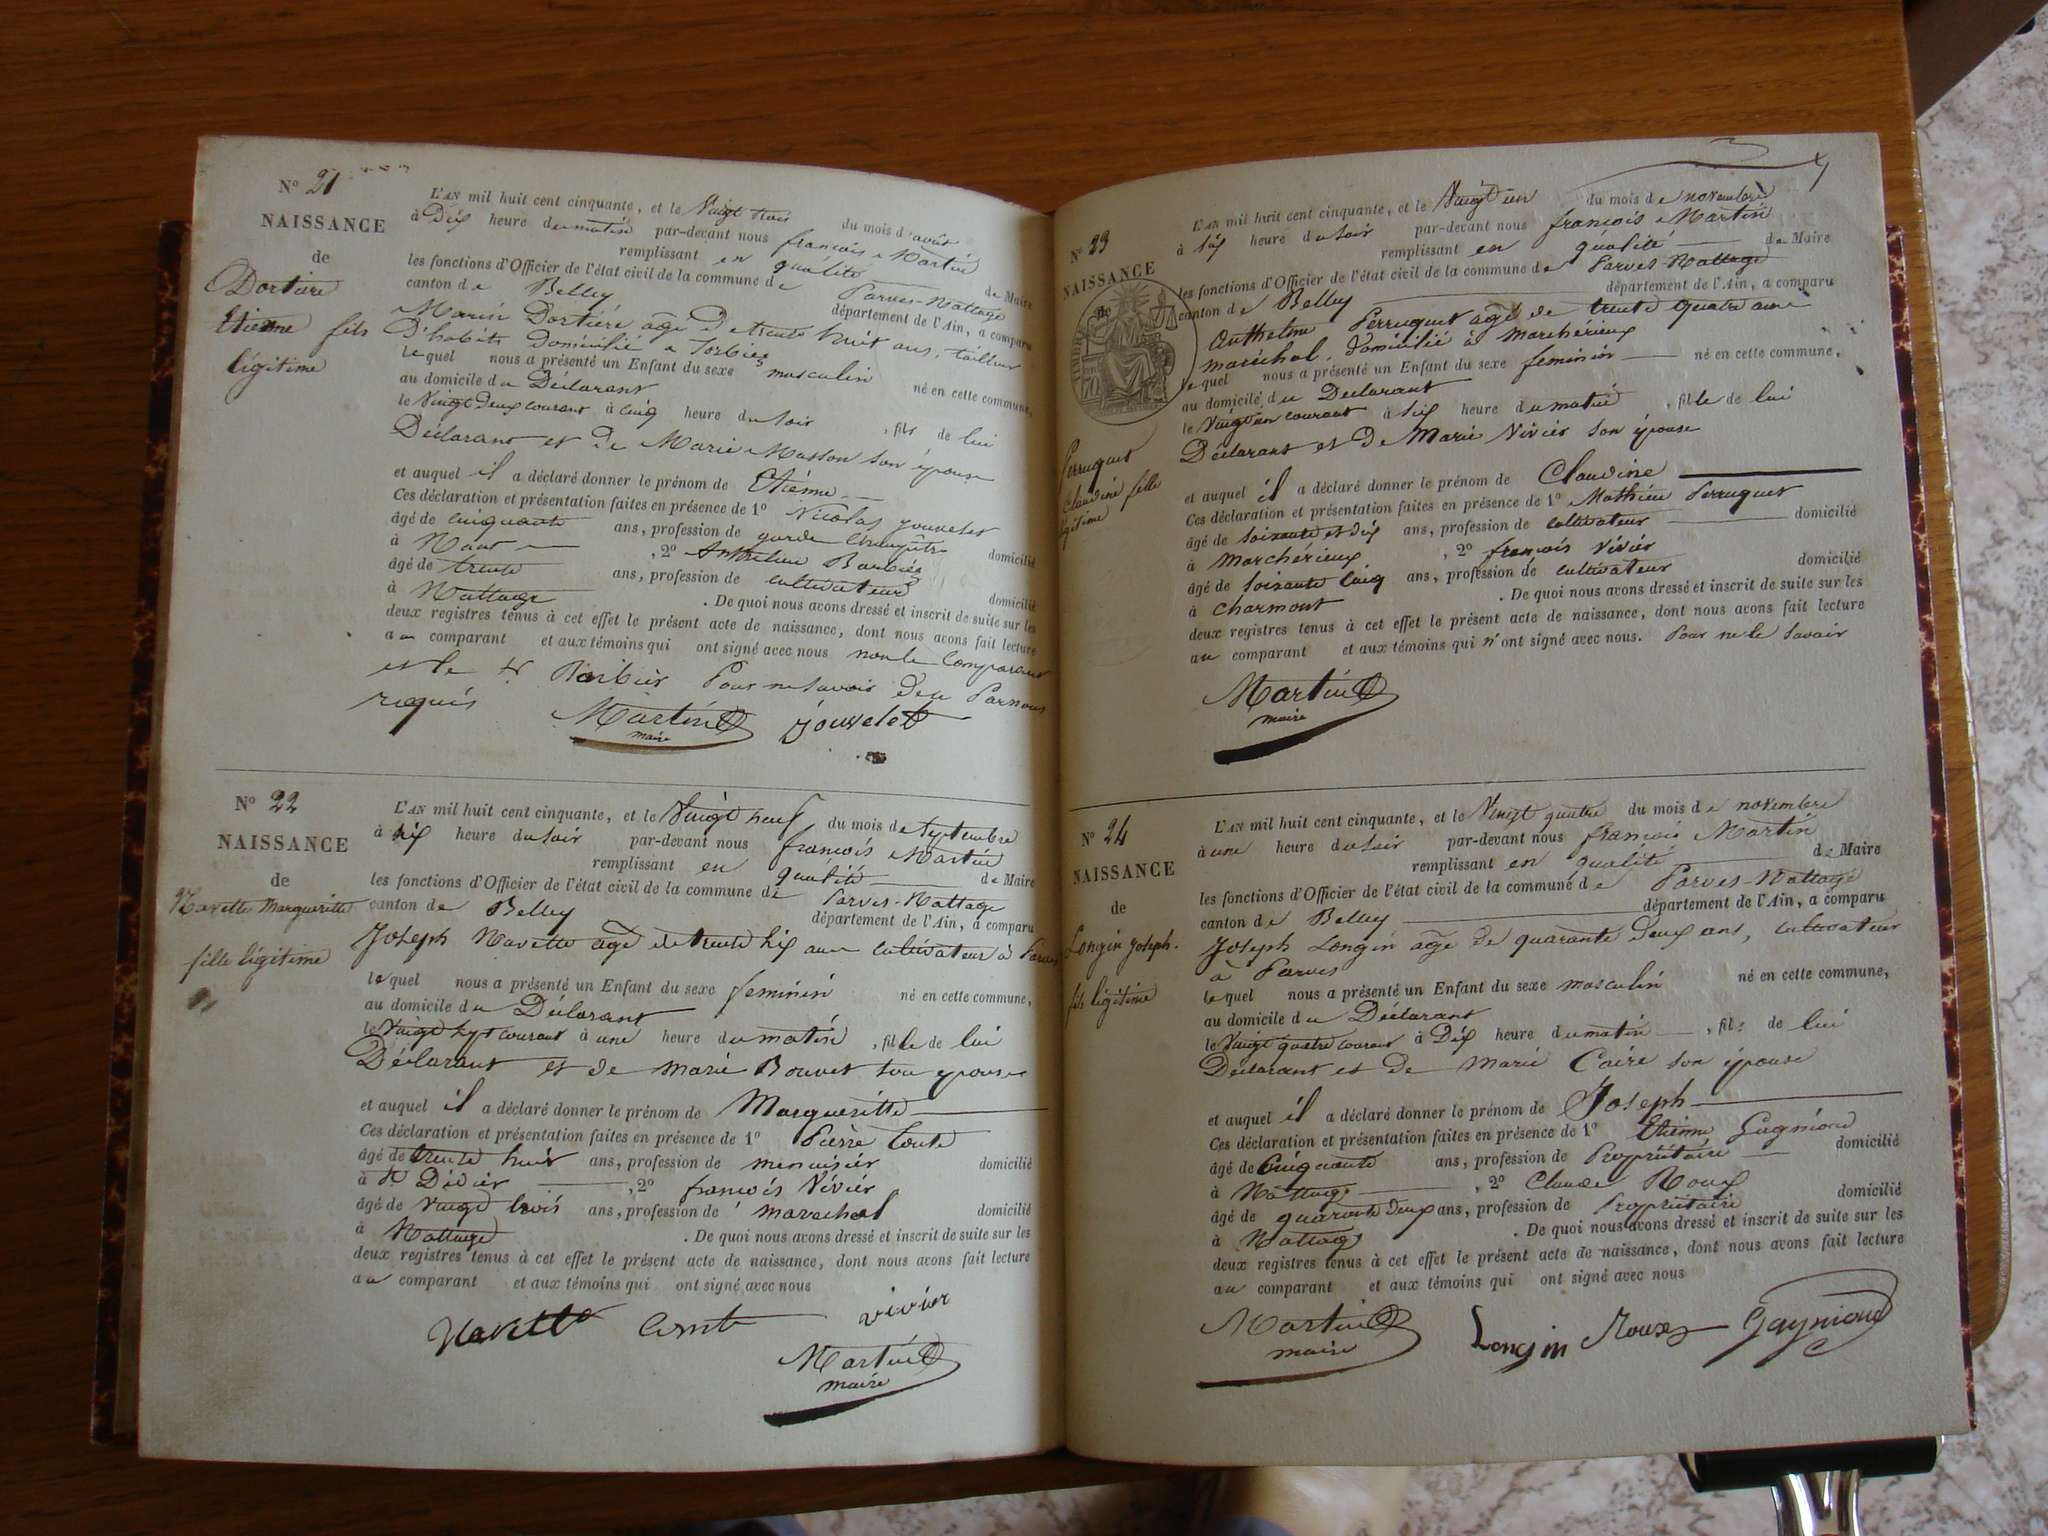 N° 21
NAISSANCE
de
Dortiere
Etienne fils
légitime
L'AN mil huit cent cinquante, et le Vingt trois du mois d'août
à Dix heure du matin par-devant nous françois Martin
remplissant en qualité de Maire
les fonctions d'Officier de l'état civil de la commune de Parves-Nattage
canton de Belley département de l'Ain, a comparu
Marin Dortiére âgé de trente huit ans, tailleur
D'habits Domicilié a
lequel nous a présenté un Enfant du sexe masculin né en cette commune,
au domicile du Déclarant
le Vingt deux courant à cinq heure du soir , fils de lui
Déclarant et de Marie Masson son épouse
et auquel il a déclaré donner le prénom de Etienne
Ces déclaration et présentation faites en présence de 1° Nicolas Jouvelet
âgé de cinquante ans, profession de garde champêtre domicilié
à Nant , 2° Anthelme Barbier
âgé de trente ans, profession de cultivateur domicilié
à Nattage . De quoi nous avons dressé et inscrit de suite sur les
deux registres tenus à cet effet le présent acte de naissance, dont nous avons fait lecture
au comparant et aux témoins qui ont signé avec nous non le comparant
et le Barbier Pour ne savoir De ce Par nous
requis
Martin
maire
Jouvelet
N° 22
NAISSANCE
de
Navette Margueritte
fille légitime
L'AN mil huit cent cinquante, et le Vingt neuf du mois de septembre
à six heure du soir par-devant nous françois Martin
remplissant en qualité de Maire
les fonctions d'Officier de l'état civil de la commune de Parves-Nattage
canton de Belley département de l'Ain, a comparu
Joseph Navette âgé de trente six ans cultivateur à Parves
lequel nous a présenté un Enfant du sexe feminin né en cette commune,
au domicile du Déclarant
le Vingt sept courant à une heure du matin , fille de lui
Déclarant et de marie Bouvet son épouse
et auquel il a déclaré donner le prénom de Margueritte
Ces déclaration et présentation faites en présence de 1° Pierre Conte
âgé de trente huit ans, profession de menuisier domicilié
à St Didier , 2° françois Vivier
âgé de Vingt trois ans, profession de marechal domicilié
à Nattage . De quoi nous avons dressé et inscrit de suite sur les
deux registres tenus à cet effet le présent acte de naissance, dont nous avons fait lecture
au comparant et aux témoins qui ont signé avec nous
Navette vivier
Martin
maire
N° 23
NAISSANCE
de
Perruquet
Claudine fille
légitime
L'AN mil huit cent cinquante, et le Vingt un du mois de novembre
à six heure du soir par-devant nous françois Martin
remplissant en qualité de Maire
les fonctions d'Officier de l'état civil de la commune de Parves-Nattage
canton de Belley département de l'Ain, a comparu
Anthelme Perruquet âgé de trente quatre ans
maréchal, domicilié à Marchérieux
lequel nous a présenté un Enfant du sexe feminin né en cette commune,
au domicile du Déclarant
le Vingt un courant à six heure du matin , fille de lui
Déclarant et de Marie Vivier son épouse
et auquel il a déclaré donner le prénom de Claudine
Ces déclaration et présentation faites en présence de 1° Mathieu Perruquet
âgé de soixante et dix ans, profession de cultivateur domicilié
à Marchérieux , 2° françois Vivier
âgé de soixante cinq ans, profession de cultivateur domicilié
à Charmont . De quoi nous avons dressé et inscrit de suite sur les
deux registres tenus à cet effet le présent acte de naissance, dont nous avons fait lecture
au comparant et aux témoins qui n'ont signé avec nous. Pour ne le savoir
Martin
maire
N° 24
NAISSANCE
de
Longin Joseph.
fils légitime
L'AN mil huit cent cinquante, et le Vingt quatre du mois de novembre
à une heure du soir par-devant nous françois Martin
remplissant en qualité de Maire
les fonctions d'Officier de l'état civil de la commune de Parves-Nattage
canton de Belley département de l'Ain, a comparu
Joseph Longin âgé de quarante deux ans, cultivateur
à Parves
lequel nous a présenté un Enfant du sexe masculin né en cette commune,
au domicile du Déclarant
le Vingt quatre courant à Dix heure du matin , fils de lui
Déclarant et de marie Caire son épouse
et auquel il a déclaré donner le prénom de Joseph
Ces déclaration et présentation faites en présence de 1° Etienne Gaymond
âgé de Cinquante ans, profession de Propriétaire domicilié
à Nattage , 2° Claude Roux
âgé de quarante deux ans, profession de Propriétaire domicilié
à Nattage . De quoi nous avons dressé et inscrit de suite sur les
deux registres tenus à cet effet le présent acte de naissance, dont nous avons fait lecture
au comparant et aux témoins qui ont signé avec nous
Martin Longin Roux Gaymond
maire